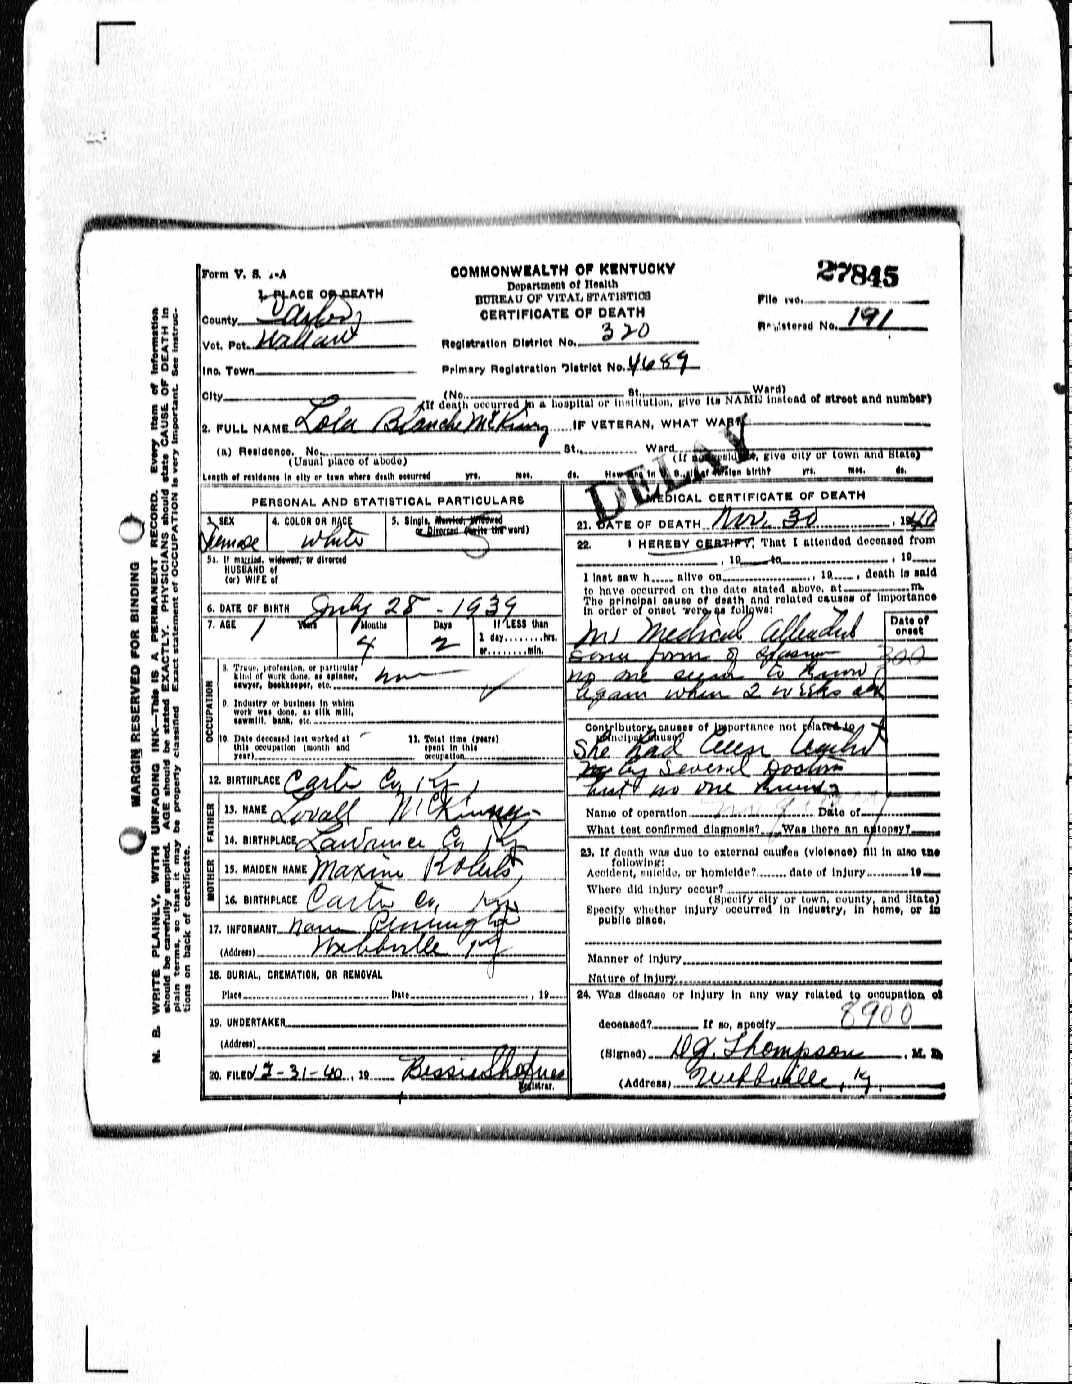 Form V. S. 1-A
COMMONWEALTH OF KENTUCKY
Department of Health
BUREAU OF VITAL STATISTICS
CERTIFICATE OF DEATH
27845
File No.
Registered No. 191
1. PLACE OF DEATH
County
Vot. Pct.
Inc. Town
City
Registration District No. 320
Primary Registration District No. 4689
(No. St. Ward)
(If death occurred in a hospital or institution, give its NAME instead of street and number)
2. FULL NAME Lola Blanche McKinney IF VETERAN, WHAT WAR?
(a) Residence. No. St., Ward
(Usual place of abode) (If nonresident, give city or town and State)
Length of residence in city or town where death occurred yrs. mos. ds. How long in U. S., if of foreign birth? yrs. mos. ds.
DELAY
PERSONAL AND STATISTICAL PARTICULARS
3. SEX 4. COLOR OR RACE 5. Single, Married, Widowed or Divorced (write the word)
Female White S
5a. If married, widowed, or divorced
HUSBAND of
(or) WIFE of
6. DATE OF BIRTH July 28 - 1939
7. AGE 1 Years 4 Months 2 Days If LESS than 1 day......hrs. or......min.
OCCUPATION
8. Trade, profession, or particular kind of work done, as spinner, sawyer, bookkeeper, etc.
9. Industry or business in which work was done, as silk mill, sawmill, bank, etc.
10. Date deceased last worked at this occupation (month and year)
11. Total time (years) spent in this occupation
12. BIRTHPLACE Carter Co, Ky,
FATHER
13. NAME Lovall McKinney
14. BIRTHPLACE Lawrence Co Ky
MOTHER
15. MAIDEN NAME Maxine Roberts,
16. BIRTHPLACE Carter Co, Ky
17. INFORMANT Pennington
(Address) Webbville Ky
18. BURIAL, CREMATION, OR REMOVAL
Place Date , 19
19. UNDERTAKER
(Address)
20. FILED 12-31-40, 19 Bessie
Registrar.
MEDICAL CERTIFICATE OF DEATH
21. DATE OF DEATH Nov. 30, 1940
22. I HEREBY CERTIFY, That I attended deceased from
, 19 to , 19
I last saw h alive on , 19 , death is said
to have occurred on the date stated above, at m.
The principal cause of death and related causes of importance
in order of onset were as follows:
Date of onset
Medical attended
some form of spasm 300
no one seem to know
began when 2 weeks old
Contributory causes of importance not related to
principal cause:
She had been
by several Doctors
but no one
Name of operation Date of
What test confirmed diagnosis? Was there an autopsy?
23. If death was due to external causes (violence) fill in also the
following:
Accident, suicide, or homicide? date of injury 19
Where did injury occur?
(Specify city or town, county, and State)
Specify whether injury occurred in industry, in home, or in
public place.
Manner of injury
Nature of injury
24. Was disease or injury in any way related to occupation of
deceased? If so, specify
8900
(Signed) Thompson, M. D
(Address) Webbville, Ky.
MARGIN RESERVED FOR BINDING
N. B. WRITE PLAINLY, WITH UNFADING INK—THIS IS A PERMANENT RECORD. Every item of information
should be carefully supplied. AGE should be stated EXACTLY. PHYSICIANS should state CAUSE OF DEATH in
plain terms, so that it may be properly classified. Exact statement of OCCUPATION is very important. See instruc-
tions on back of certificate.